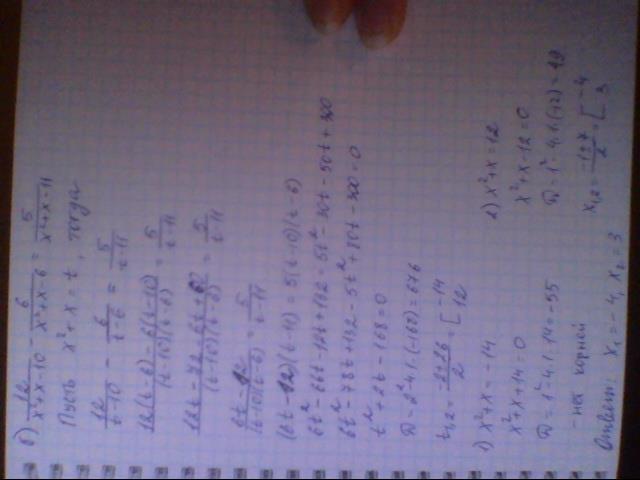 б) 12/(x²+x-10) - 6/(x²+x-6) = 5/(x²+x-11)
Пусть x²+x=t, тогда
12/(t-10) - 6/(t-6) = 5/(t-11)
(12(t-6)-6(t-10))/((t-10)(t-6)) = 5/(t-11)
(12t-72-6t+60)/((t-10)(t-6)) = 5/(t-11)
(6t-12)/((t-10)(t-6)) = 5/(t-11)
(6t-12)(t-11)=5(t-10)(t-6)
6t²-66t-12t+132=5t²-30t-50t+300
6t²-78t+132-5t²+80t-300=0
t²+2t-168=0
D=2²-4·1·(-168)=676
t₁,₂=(-2±26)/2=[-14
12
1) x²+x=-14
x²+x+14=0
D=1²-4·1·14=-55
-нет корней
2) x²+x=12
x²+x-12=0
D=1²-4·1·(-12)=49
x₁,₂=(-1±7)/2=[-4
3
Ответ: x₁=-4, x₂=3